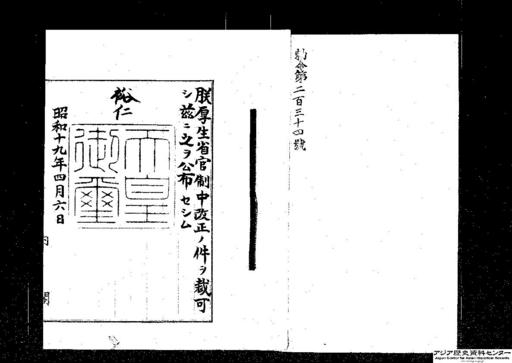 勅令第二百三十四號
朕厚生省官制中改正ノ件ヲ裁可
シ茲ニ之ヲ公布セシム
裕仁
天皇
御璽
昭和十九年四月六日
内閣
アジア歴史資料センター
Japan Center for Asian Historical Records